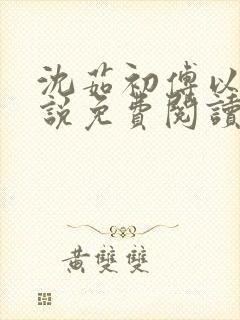 沈茹初傅以
說免費閱讀
黃雙雙